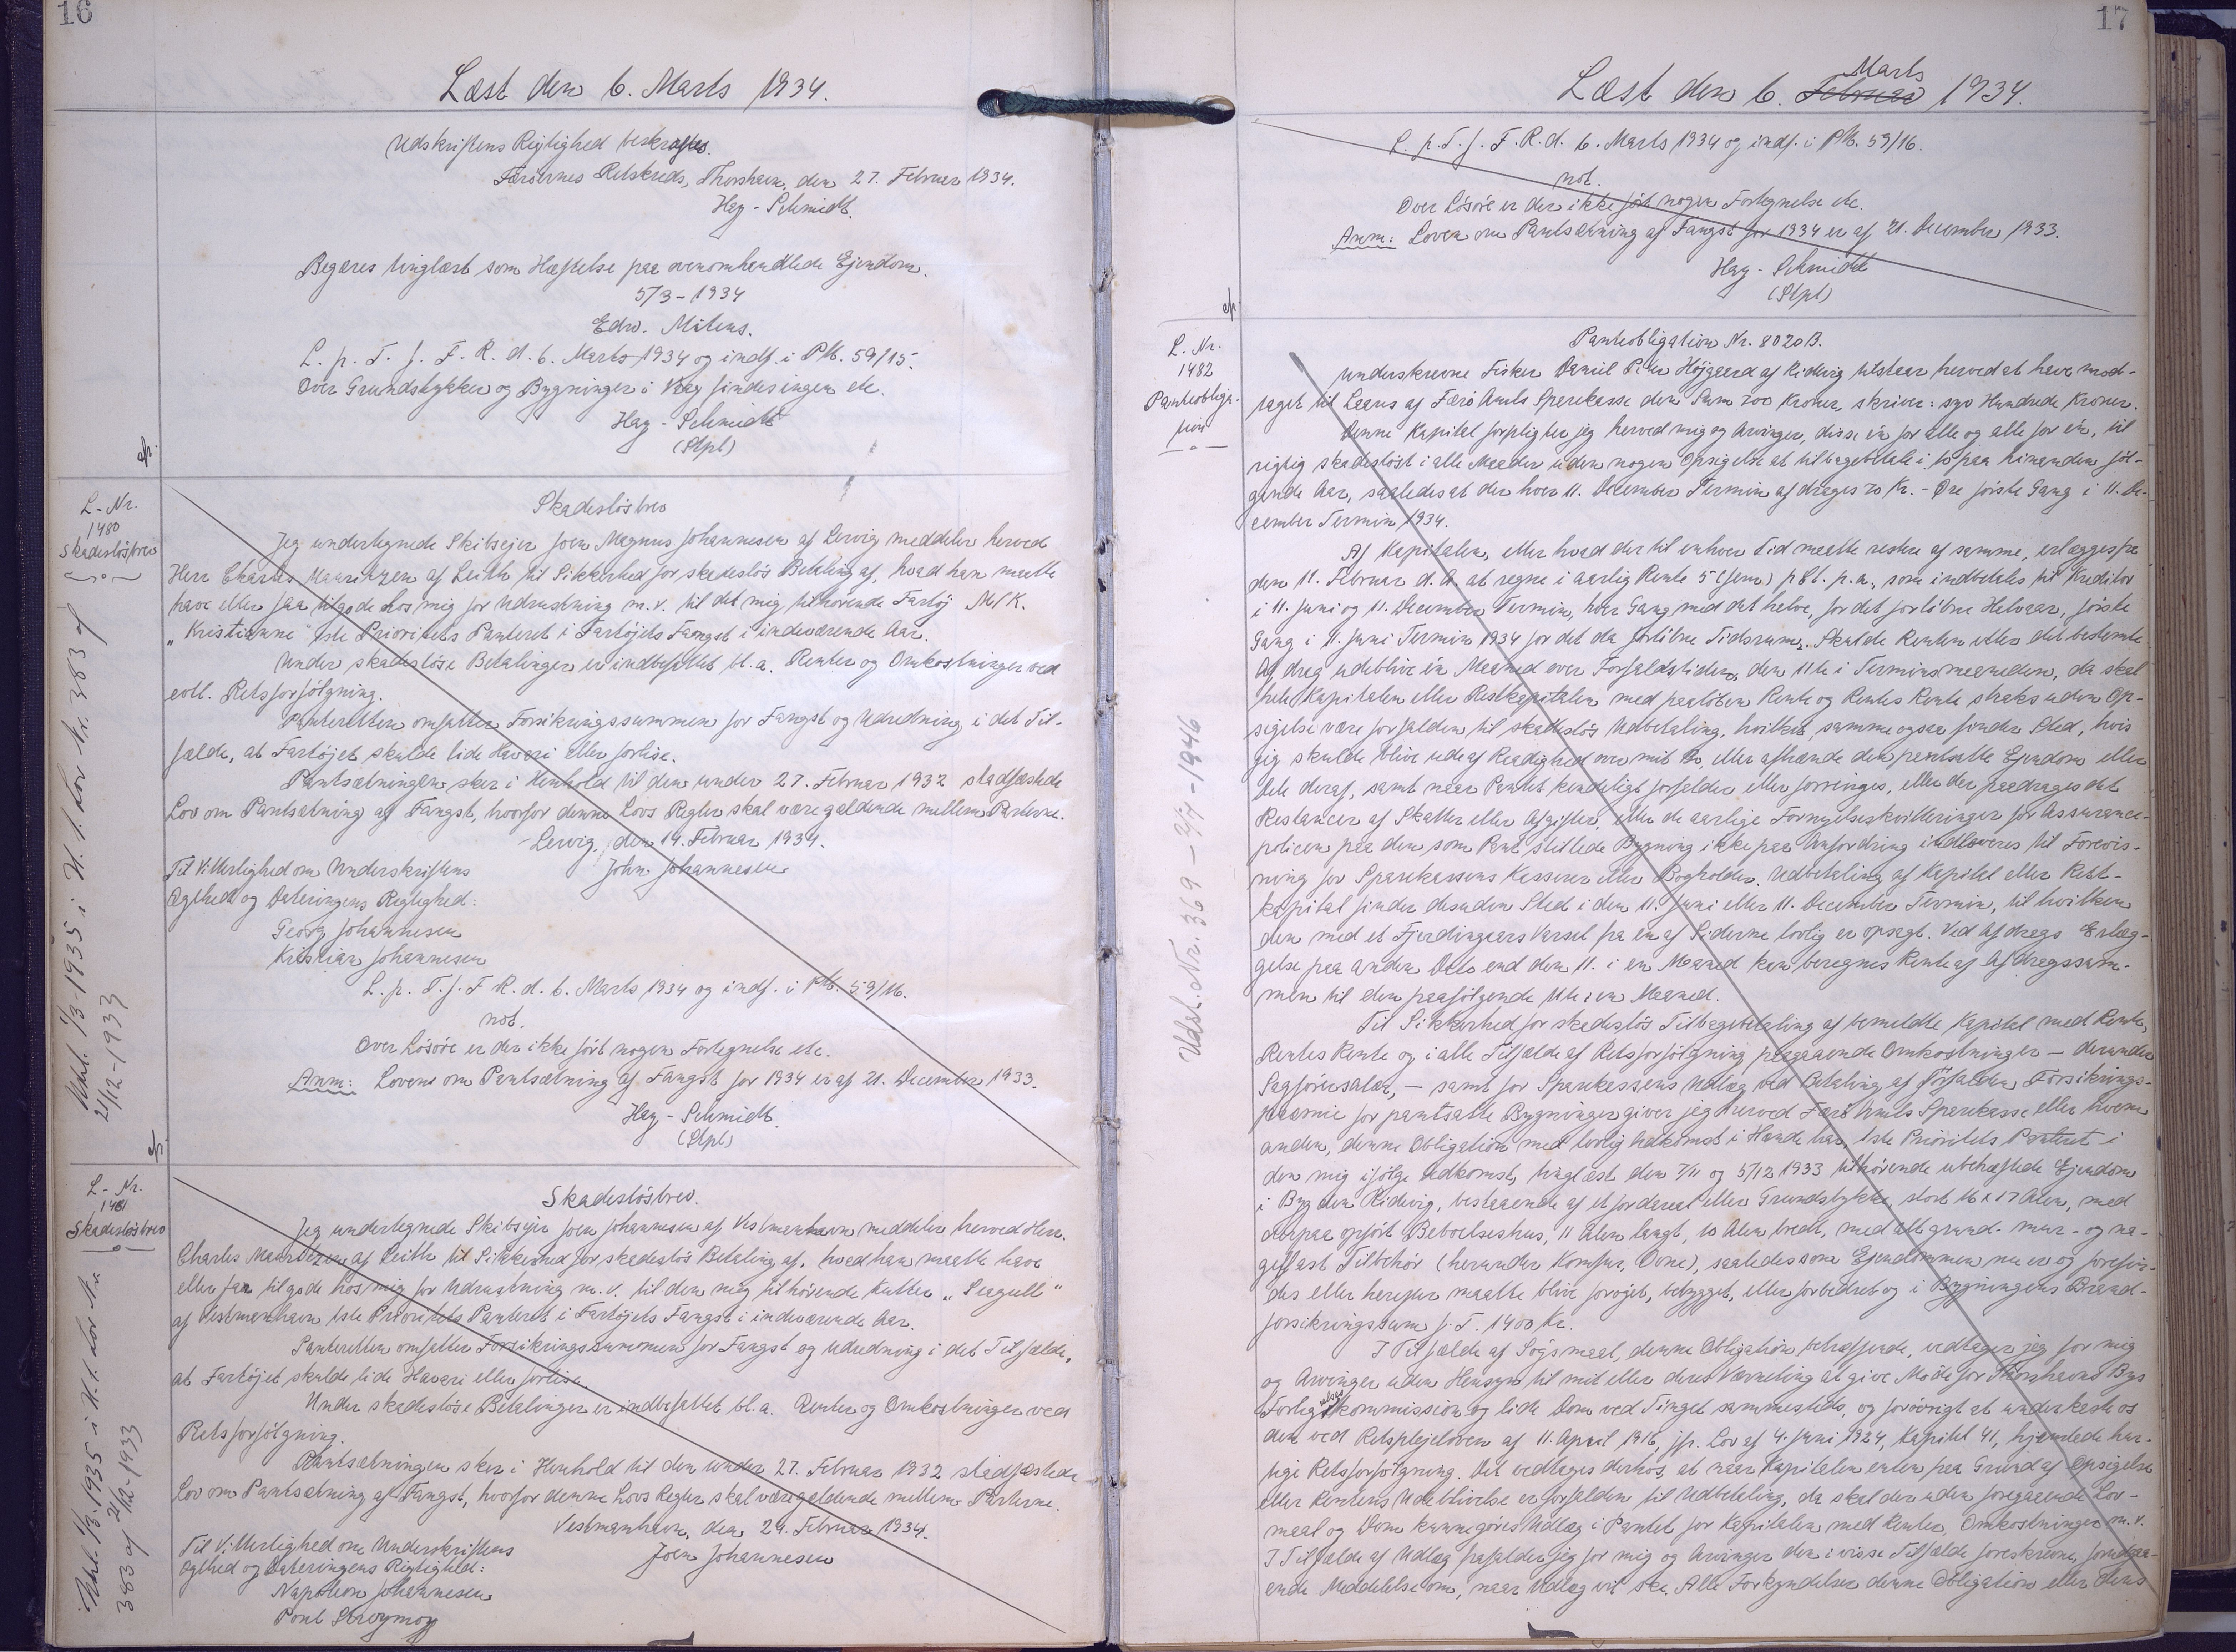 16
Læst den 6. Marts 1934.
Udskriftens Rigtighed bekræftes.
Færøernes Retskreds, Thorshavn, den 27. Februar 1934.
Hay-Schmidt.
Begæres tinglæst som Hæftelse paa ovenomhandlede Ejendom.
5/3-1934
Edw. Mitens.
L. p. T. f. F. R. d. 6. Marts 1934 og indf. i PM. 59/15.
Over Grundstykker og Bygninger i Vaag findes ingen etc.
Hay-Schmidt
(Stpl)
L-Nr.
1480
Skadesløsbrev
Skadesløsbrev
Jeg undertegnede Skibsejer Joen Magnus Johannesen af Lervig meddeler herved
Herr Charles Mauritzen af Leith til Sikkerhed for skadesløs Betaling af, hvad han maatte
have eller faa tilgode hos mig for Udrustning m.v. til det mig tilhørende Fartøj M/K.
"Kristianne" 1ste Prioritets Panteret i Fartøjets Fangst i indeværende Aar.
Under skadesløse Betalinger er indbefattet bl.a. Renter og Omkostninger ved
evtl. Retsforfølgning.
Panteretten omfatter Forsikringssummen for Fangst og Udredning i det Til-
fælde, at Fartøjet skulde lide Haveri eller forlise.
Pantsætningen sker i Henhold til den under 27. Februar 1932 stadfæstede
Lov om Pantsætning af Fangst, hvorfor denne Lovs Regler skal være gældende mellem Parterne.
Lervig, den 14. Februar 1934.
Til Vitterlighed om Underskriftens
John Johannesen
Ægthed og Dateringens Rigtighed:
Georg Johannesen
Kristian Johannesen
L. p. T. f. F. R. d. 6. Marts 1934 og indf. i PM. 59/16.
not.
Over Løsøre er der ikke ført nogen Fortegnelse etc.
Anm: Loven om Pantsætning af Fangst for 1934 er af 21. December 1933.
Hay-Schmidt.
(Stpl)
1/3-1935 i H. t. Lov Nr. 383 af
21/12-1933
L-Nr.
1481
Skadesløsbrev
Skadesløsbrev.
Jeg undertegnede Skibsejer Joen Johannesen af Vestmanhavn meddeler herved Herr.
Charles Mauritzen af Leith til Sikkerhed for skadesløs Betaling af, hvad han maatte have
eller faa tilgode hos mig for Udrustning m.v. til den mig tilhørende Kutter "Seagull"
af Vestmanhavn 1ste Prioritets Panteret i Fartøjets Fangst i indeværende Aar.
Panteretten omfatter Forsikringssummen for Fangst og Udredning i det Tilfælde,
at Fartøjet skulde lide Haveri eller forlise.
Under skadesløse Betalinger er indbefattet bl.a. Renter og Omkostninger ved
Retsforfølgning.
Pantsætningen sker i Henhold til den under 27. Februar 1932 stadfæstede
Lov om Pantsætning af Fangst, hvorfor denne Lovs Regler skal være gældende mellem Parterne.
Vestmanhavn, den 24. Februar 1934.
Til Vitterlighed om Underskriftens
Joen Johannesen
Ægthed og Dateringens Rigtighed:
Napoleon Johannesen
Poul Strøymoy
1/3 1935 i H. t. Lov Nr.
383 af 21/12-1933
17
Læst den 6. Februar Marts 1934.
L. p. T. f. F. R. d. 6. Marts 1934 og indf. i PM. 59/16.
not.
Over Løsøre er der ikke ført nogen Fortegnelse etc.
Anm: Loven om Pantsætning af Fangst for 1934 er af 21. December 1933.
Hay-Schmidt
(Stpl)
L. Nr.
1482
Panteobliga-
tion
Panteobligation Nr. 8020B.
Underskrevne Fisker Daniel P. Højgaard af Ridevig tilstaar herved at have mod-
taget til Laans af Færø Amts Sparekasse den Sum 700 Kroner, skriver: syv Hundrede Kroner.
Denne Kapital forpligter jeg herved mig og Arvinger, disse én for alle og alle for én, til
rigtig skadesløst i alle Maader uden nogen Opsigelse at tilbagebetale i 10 paa hinanden føl-
gende Aar, saaledes at der hver 11. December Termin afdrages 70 Kr. - Øre første Gang i 11. De-
cember Termin 1934.
Af Kapitalen, eller hvad der til enhver Tid maatte restere af samme, erlægges fra
den 11. Februar d. A. at regne i aarlig Rente 5 (fem) pCt. p.a., som indbetales til Kreditor
i 11. Juni og 11. December Termin, hver Gang med det halve, for det forløbne Halvaar, første
Gang i 11. Juni Termin 1934 for det da forløbne Tidsrum. Skulde Renten eller det bestemte
Afdrag udeblive én Maaned over Forfaldstiden, den 11te i Terminsmaaneden, da skal
hele Kapitalen eller Restkapitalen med paaløben Rente og Rentes Rente straks uden Op-
sigelse være forfalden til skadesløs Udbetaling, hvilket samme ogsaa finder Sted, hvis
jeg skulde blive ude af Raadighed over mit Bo, eller afhænde den pantsatte Ejendom eller
dele deraf, samt naar Pantet kendeligt forfalder eller forringes, eller der paadrages det
Restancer af Skatter eller Afgifter, eller de aarlige Fornyelseskvitteringer for Assurance-
policen paa den som Pant stillede Bygning ikke paa Anfordring indleveres til Forevis-
ning for Sparekassens Kasserer eller Bogholder. Udbetaling af Kapital eller Rest-
kapital finder desuden Sted i den 11. Juni eller 11. December Termin, til hvilken
den med et Fjerdingaars Varsel fra en af Siderne lovlig er opsagt. Ved Afdrags Erlæg-
gelse paa anden Dato end den 11. i en Maaned kan beregnes Rente af Afdragssum-
men til den paafølgende 11te i en Maaned.
Til Sikkerhed for skadesløs Tilbagebetaling af bemeldte Kapital med Rente,
Rentes Rente og i alle Tilfælde af Retsforfølgning paagaaende Omkostninger - derunder
Sagførersalær, - samt for Sparekassens Udlæg ved Betaling af forfalden Forsikrings-
præmie for pantsatte Bygninger giver jeg herved Færø Amts Sparekasse eller hvem
anden, denne Obligation med lovlig Adkomst i Hænde har, 1ste Prioritets Panteret i
den mig ifølge Adkomst, tinglæst den 7/11 og 5/12 1933 tilhørende ubehæftede Ejendom
i Bygden Ridevig, bestaaende af et Jordareal eller Grundstykke, stort 16 x 17 Alen, med
derpaa opført Beboelseshus, 11 Alen langt, 10 Alen bredt, med alt grund- mur- og na-
gelfast Tilbehør (herunder Komfur, Ovne), saaledes som Ejendommen nu er og forefin-
des eller herefter maatte blive forøjet, bebygget, eller forbedret og i Bygningens Brand-
forsikringssum f. T. 1400 Kr.
I Tilfælde af Søgsmaal, denne Obligation betræffende, vedtager jeg for mig
og Arvinger uden Hensyn til mit eller deres Værneting at give Møde for Thorshavns Bys
Forligelseskommission og lide Dom ved Tinget sammesteds, og forøvrigt at underkaste os
den ved Retsplejeloven af 11. April 1916, jfr. Lov af 4. Juni 1924, Kapitel 41, hjemlede hur-
tige Retsforfølgning. Det vedtages derhos, at naar Kapitalen enten paa Grund af Opsigelse
eller Rentens Udeblivelse er forfalden til Udbetaling, da skal der uden foregaaende Lov-
maal og Dom kunne gøres Udlæg i Pantet for Kapitalen med Renter, Omkostninger m.v.
I Tilfælde af Udlæg frafalder jeg for mig og Arvinger den i visse Tilfælde foreskrevne, forudgaa-
ende Meddelelse om, naar Udlæg vil ske. Alle Forkyndelser denne Obligation eller dens
Udsl. Nr. 369 - 2/7 - 1946